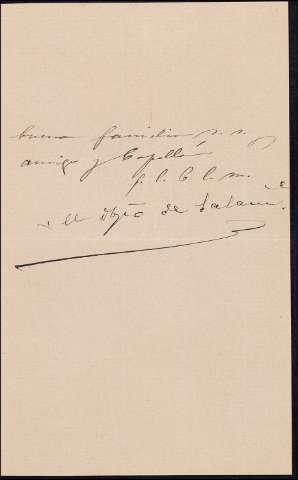 buena familia s. s.
amigo y Capellán
q. l. b. l. m.
El Obpo de Salam.ca